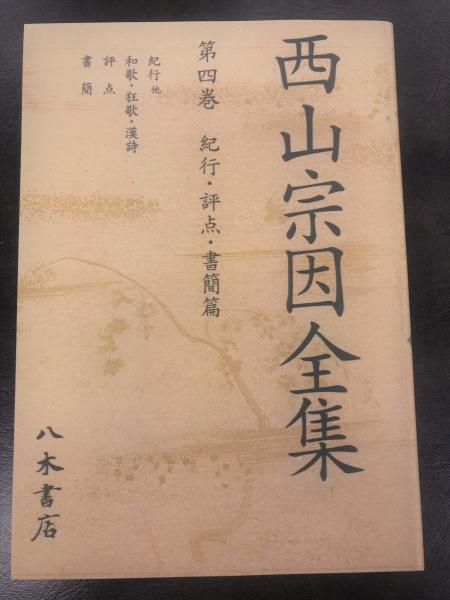 西山宗因全集
第四巻 紀行・評点・書簡篇
紀行他
和歌・狂歌・漢詩
評点
書簡
八木書店